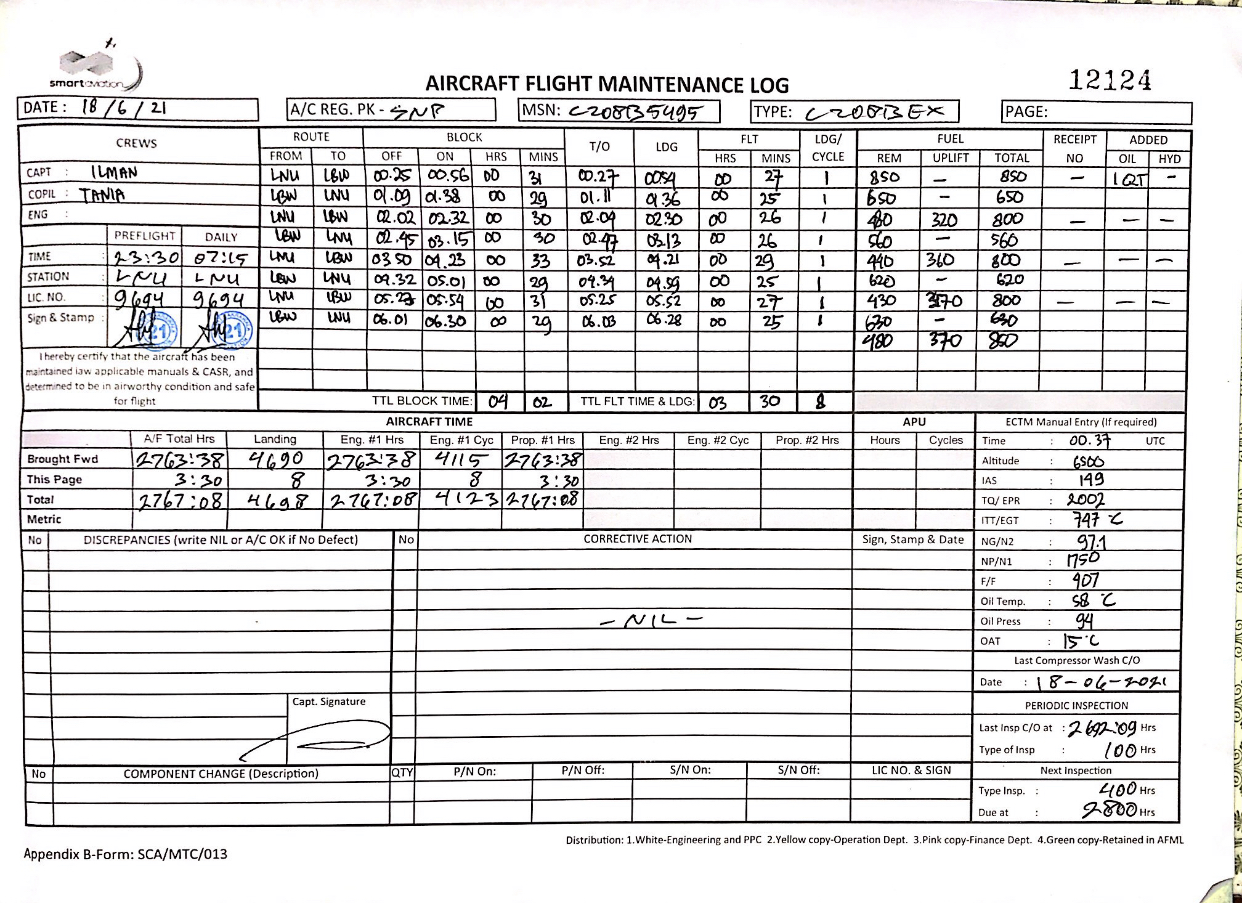 smart aviation
AIRCRAFT FLIGHT MAINTENANCE LOG
12124
DATE : 18 / 6 / 21 A/C REG. PK - SNP MSN: C208B5495 TYPE: C208B EX PAGE:
CREWS ROUTE BLOCK T/O LDG FLT LDG/ CYCLE FUEL RECEIPT NO ADDED
FROM TO OFF ON HRS MINS HRS MINS REM UPLIFT TOTAL OIL HYD
CAPT : ILMAN LNU LBW 00.25 00.56 00 31 00.27 0054 00 27 1 850 – 850 – 1QT –
COPIL : TANIA LBW LNU 01.09 01.38 00 29 01.11 01.36 00 25 1 650 – 650
ENG : LNU LBW 02.02 02.32 00 30 02.04 02.30 00 26 1 480 320 800 – – –
PREFLIGHT DAILY LBW LNU 02.45 03.15 00 30 02.47 03.13 00 26 1 560 – 560
TIME : 23:30 07:15 LNU LBW 03 50 04.23 00 33 03.52 04.21 00 29 1 440 360 800 – – –
STATION : LNU LNU LBW LNU 04.32 05.01 00 29 04.34 04.59 00 25 1 620 – 620
LIC. NO. : 9694 9694 LNU LBW 05.23 05.54 00 31 05.25 05.52 00 27 1 430 370 800 – – –
Sign & Stamp : 21 21 LBW LNU 06.01 06.30 00 29 06.03 06.28 00 25 1 630 – 630
480 370 850
I hereby certify that the aircraft has been
maintained iaw applicable manuals & CASR, and
determined to be in airworthy condition and safe
for flight
TTL BLOCK TIME: 04 02 TTL FLT TIME & LDG: 03 30 8
AIRCRAFT TIME APU ECTM Manual Entry (If required)
A/F Total Hrs Landing Eng. #1 Hrs Eng. #1 Cyc Prop. #1 Hrs Eng. #2 Hrs Eng. #2 Cyc Prop. #2 Hrs Hours Cycles Time : 00.37 UTC
Brought Fwd 2763:38 4690 2763:38 4115 2763:38 Altitude : 6500
This Page 3:30 8 3:30 8 3:30 IAS : 149
Total 2767:08 4698 2767:08 4123 2767:08 TQ/ EPR : 2002
Metric ITT/EGT : 747 °C
No DISCREPANCIES (write NIL or A/C OK if No Defect) No CORRECTIVE ACTION Sign, Stamp & Date NG/N2 : 97.1
NP/N1 : 1750
F/F : 407
Oil Temp. : 58 °C
– NIL – Oil Press : 94
OAT : 15 °C
Last Compressor Wash C/O
Date : 18-06-2021
Capt. Signature
PERIODIC INSPECTION
Last Insp C/O at : 2692:09 Hrs
Type of Insp : 100 Hrs
No COMPONENT CHANGE (Description) QTY P/N On: P/N Off: S/N On: S/N Off: LIC NO. & SIGN Next Inspection
Type Insp. : 400 Hrs
Due at : 2800 Hrs
Distribution: 1.White-Engineering and PPC 2.Yellow copy-Operation Dept. 3.Pink copy-Finance Dept. 4.Green copy-Retained in AFML
Appendix B-Form: SCA/MTC/013